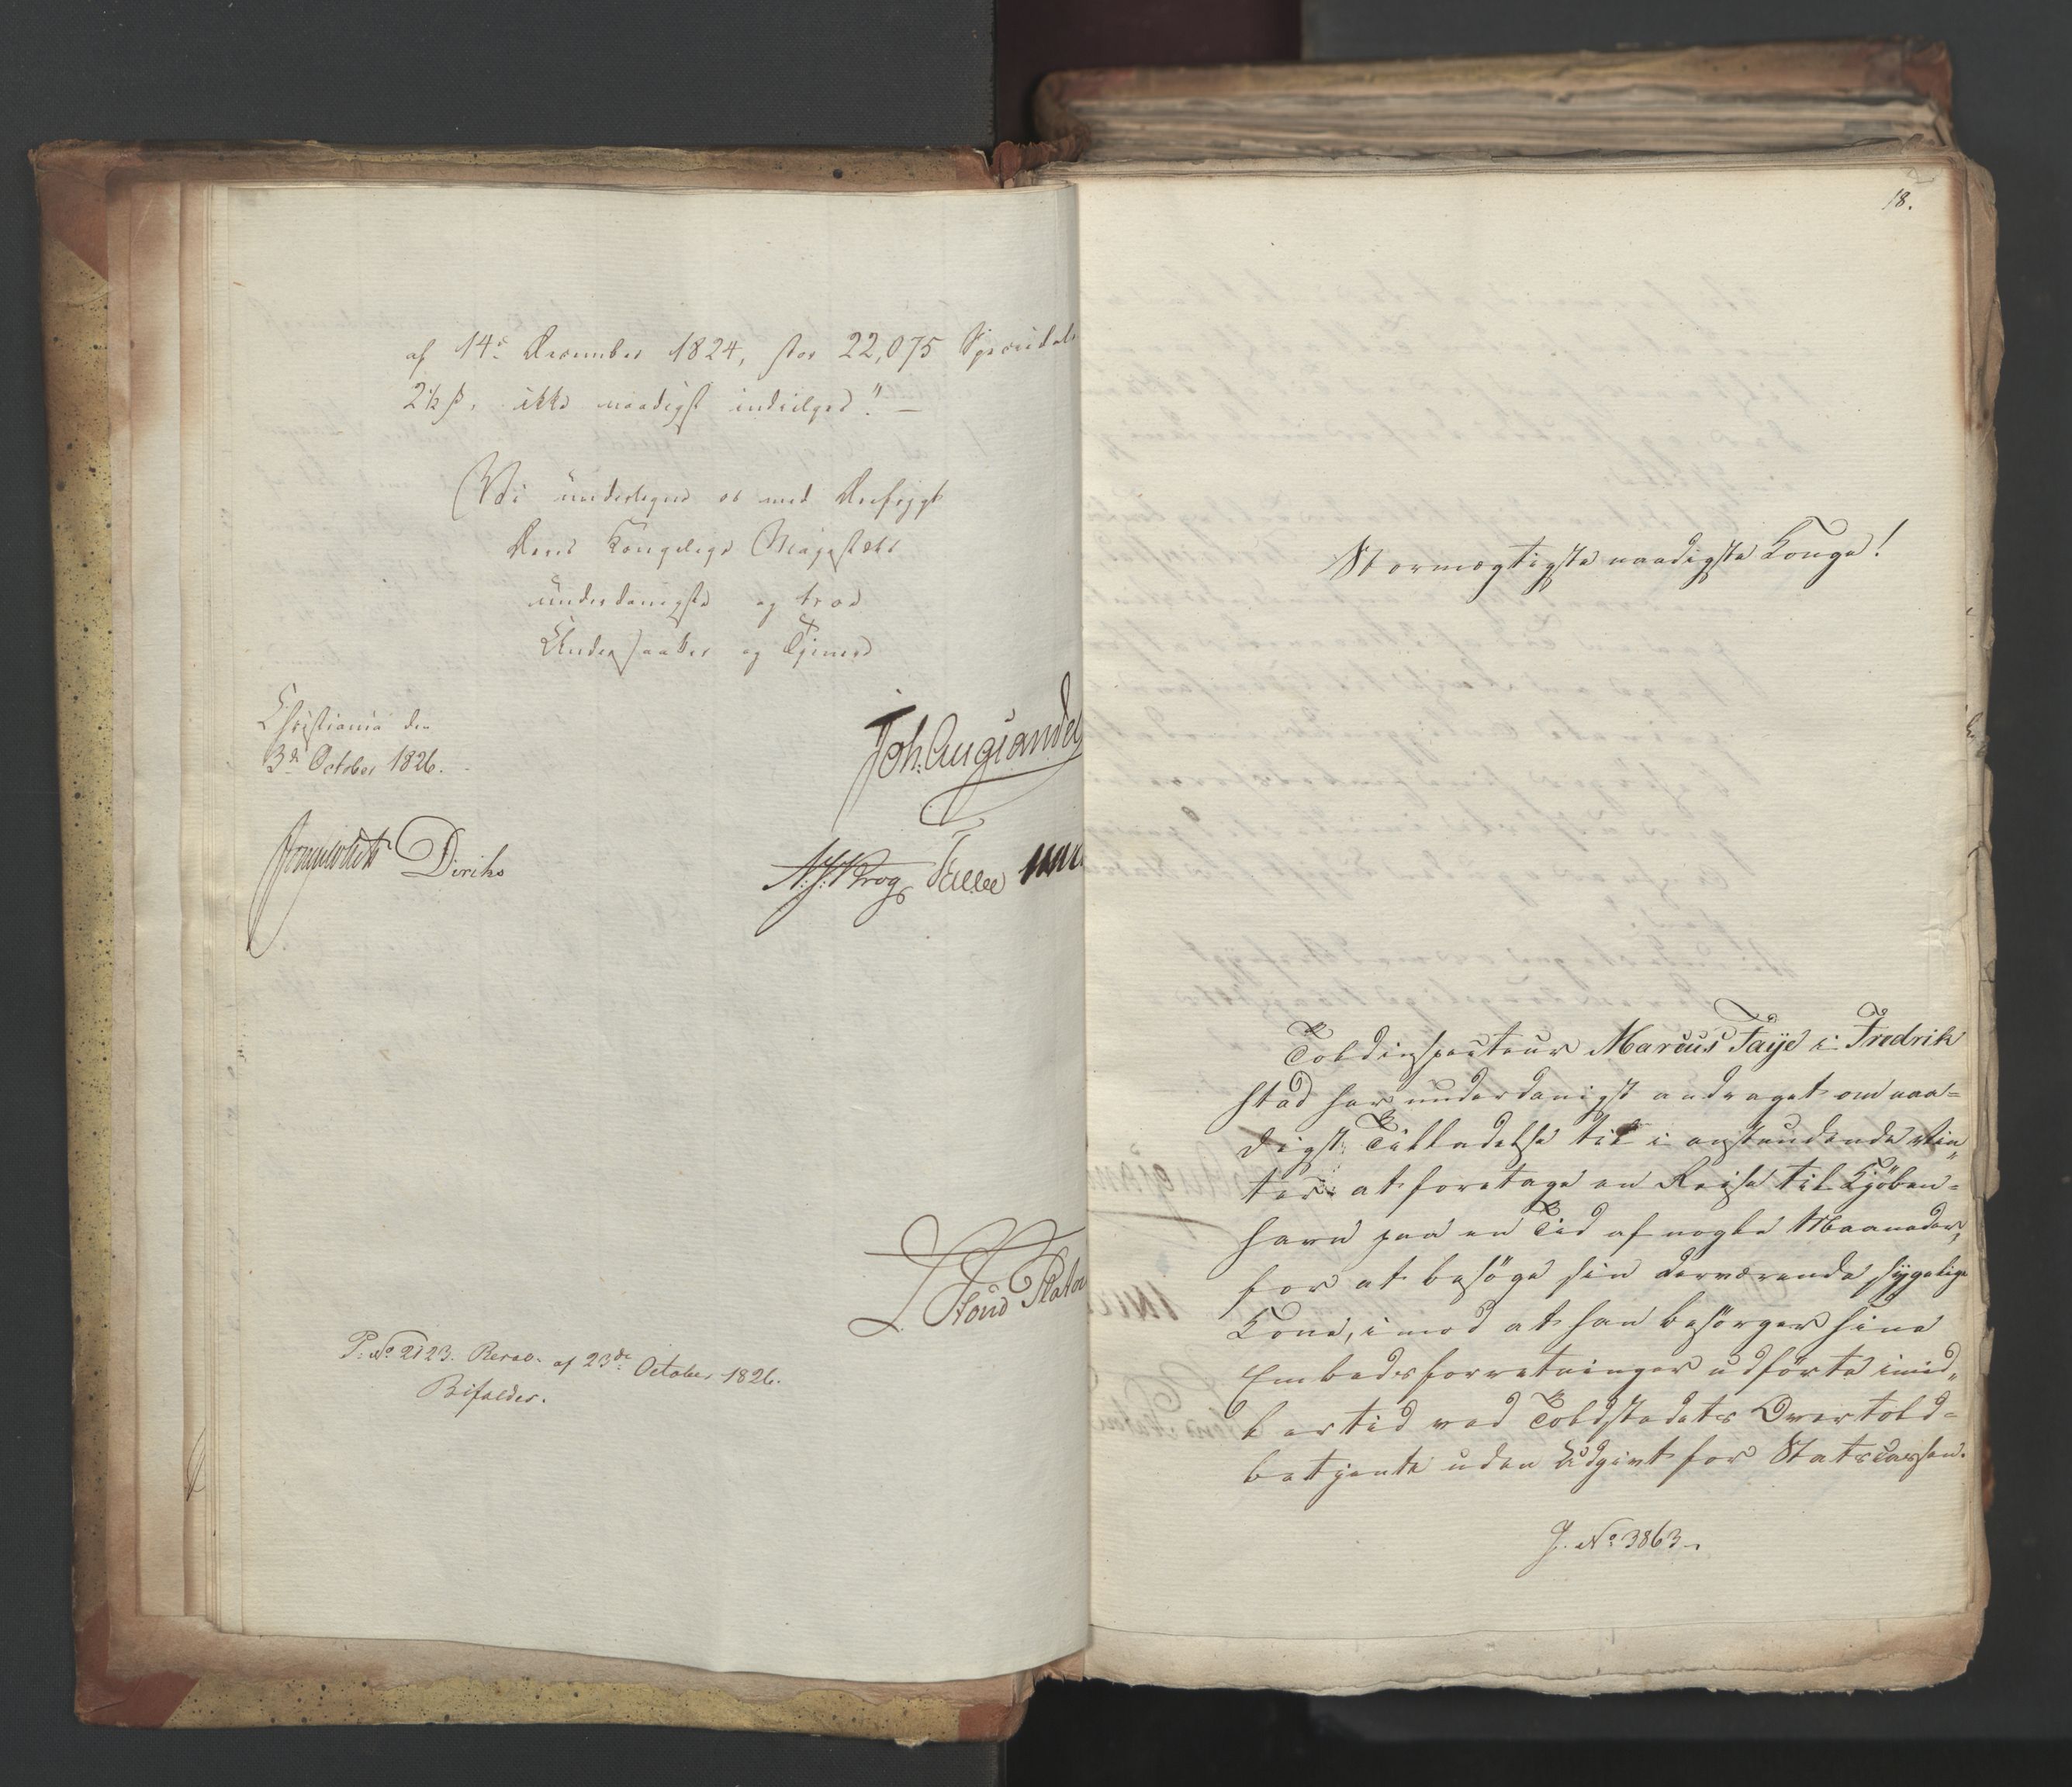 af 14de December 1824, stor 22,075 Speciedlr
2½ ß, ikke naadigst indvilges." —
Vi undertegne os med Dybfrygt
Deres Kongelige Majestæts
underdanigste og troe
Undersaatter og Tjenere
Christiania den
3de October 1826.
Joh. Aug Sandel
Sommerhielm Diriks
N. J. Krog Fasting
L. Stoud Platou
P. No 2123. Resol. af 23de October 1826.
Bifaldes.
18.
Stormægtigste naadigste Konge!
Toldinspecteur Marcus Faye i Fredrik
stad har underdanigst andraget om naa=
digst Tilladelse til i anstundende Vin„
ter at foretage en Reise til Kjöben=
havn paa en Tid af nogle Maaneder,
for at besöge sin derværende sygelige
Kone, imod at han besörger sine
Embedsforretninger udförte imid„
lertid ved Toldstedets Overtold=
betjente uden Udgivt for Statscassen.
J. No 3863.